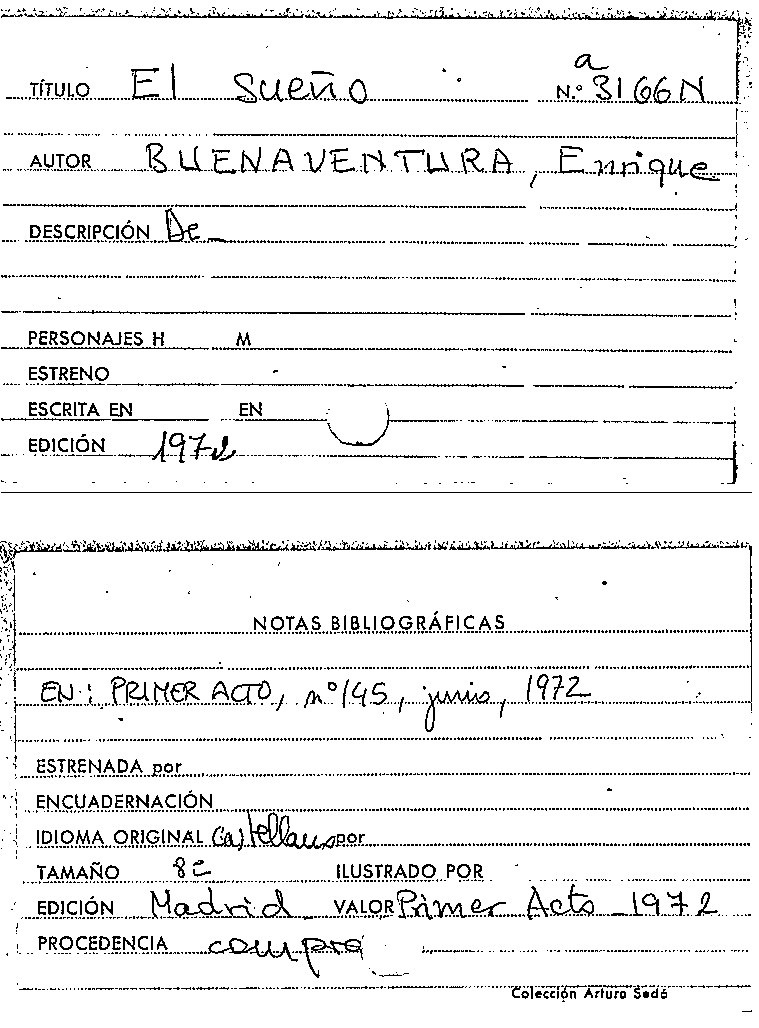 a
TÍTULO El Sueño N.º 3166N
AUTOR BUENAVENTURA, Enrique
DESCRIPCIÓN De
PERSONAJES H M
ESTRENO
ESCRITA EN EN
EDICIÓN 1972
NOTAS BIBLIOGRÁFICAS
EN: PRIMER ACTO, nº 145, junio, 1972
ESTRENADA por
ENCUADERNACIÓN
IDIOMA ORIGINAL Castellano por
TAMAÑO 8º ILUSTRADO POR
EDICIÓN Madrid VALOR Primer Acto 1972
PROCEDENCIA compra
Colección Arturo Sedó